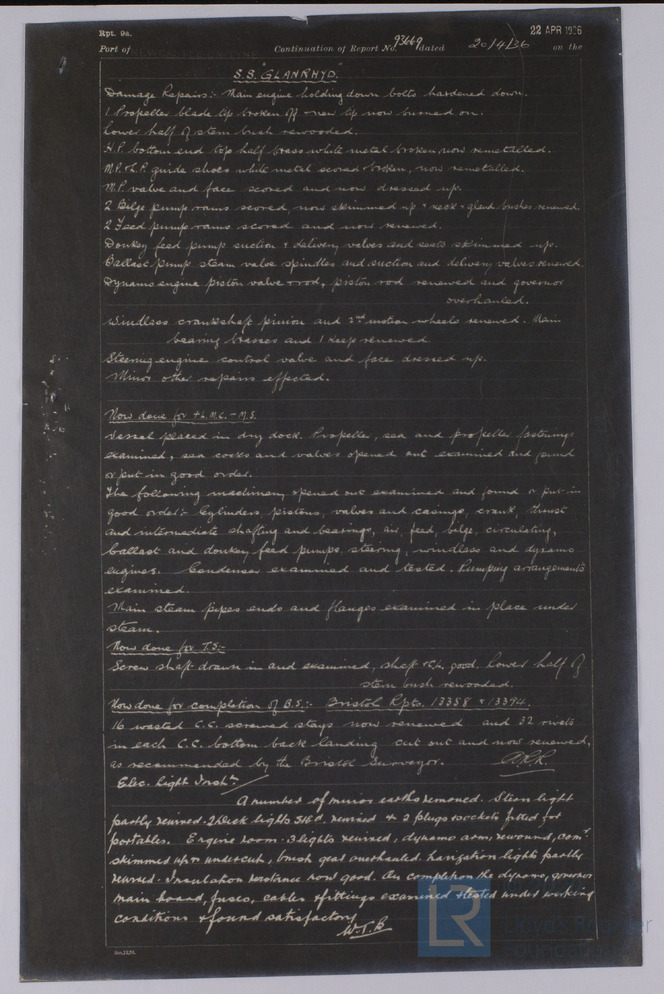 Rpt. 9a.
22 APR 1936
Port of NEWCASTLE-ON-TYNE Continuation of Report No. 93669 dated 20/4/36 on the
S.S. "GLANRHYD."
Damage Repairs:- Main engine holding down bolts hardened down.
1 Propeller blade tip broken off - new tip now burned on.
Lower half of stern bush rewooded.
H.P. bottom end top half brass white metal broken, now remetalled.
M.P. & L.P. guide shoes white metal scored & broken, now remetalled.
M.P. valve and face scored and now dressed up.
2 Bilge pump rams scored, now skimmed up & neck & gland bushes renewed.
2 Feed pump rams scored and now renewed.
Donkey feed pump suction & delivery valves and seats skimmed up.
Ballast pump steam valve spindles and suction and delivery valves renewed.
Dynamo engine piston valve & rod, piston rod renewed and governor
overhauled.
Windlass crankshaft pinion and 2nd motion wheels renewed. Main
bearing brasses and 1 keep renewed
Steering engine control valve and face dressed up.
Minor other repairs effected.
Now done for +L.M.C. - M.S.
Vessel placed in dry dock. Propeller, sea and propeller fastenings
examined, sea cocks and valves opened out examined and found
or put in good order.
The following machinery opened out examined and found or put in
good order:- Cylinders, pistons, valves and casings, crank, thrust
and intermediate shafting and bearings, air, feed, bilge, circulating,
ballast and donkey feed pumps, steering, windlass and dynamo
engines. Condenser examined and tested. Pumping arrangements
examined.
Main steam pipes ends and flanges examined in place under
steam.
Now done for T.S:-
Screw shaft drawn in and examined, shaft good. Lower half of
stern bush rewooded.
Now done for completion of B.S:- Bristol Rpts. 13358 & 13394.
16 wasted C.C. screwed stays now renewed and 32 rivets
in each C.C. bottom back landing cut out and now renewed,
as recommended by the Bristol Surveyor.
Elec. Light Inst.n
A number of minor earths removed. Stern light
partly rewired. 2 Deck lights rewired & 2 plugs & sockets fitted for
portables. Engine room - 3 lights rewired, dynamo arm. rewound, com.r
skimmed up & undercut, brush gear overhauled. Navigation lights partly
rewired. Insulation resistance now good. On completion the dynamo, governor
main board, fuses, cables & fittings examined & tested under working
conditions & found satisfactory
W.T.B
LR
Lloyd's Register
Foundation